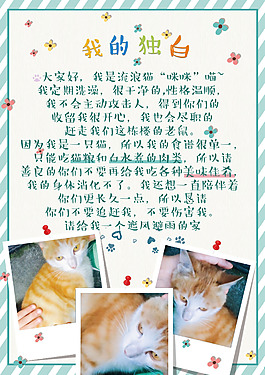 我的独白
大家好，我是流浪猫“咪咪”喵~
我定期洗澡，很干净的，性格温顺，
我不会主动攻击人，得到你们的
收留我很开心，我也会尽职的
赶走我们这栋楼的老鼠。
因为我是一只猫，所以我的食谱很单一，
只能吃猫粮和白水煮的肉类，所以请
善良的你们不要再给我吃各种美味佳肴，
我的身体消化不了。我还想一直陪伴着
你们更长久一点，所以恳请
你们不要追赶我，不要伤害我。
请给我一个遮风避雨的家